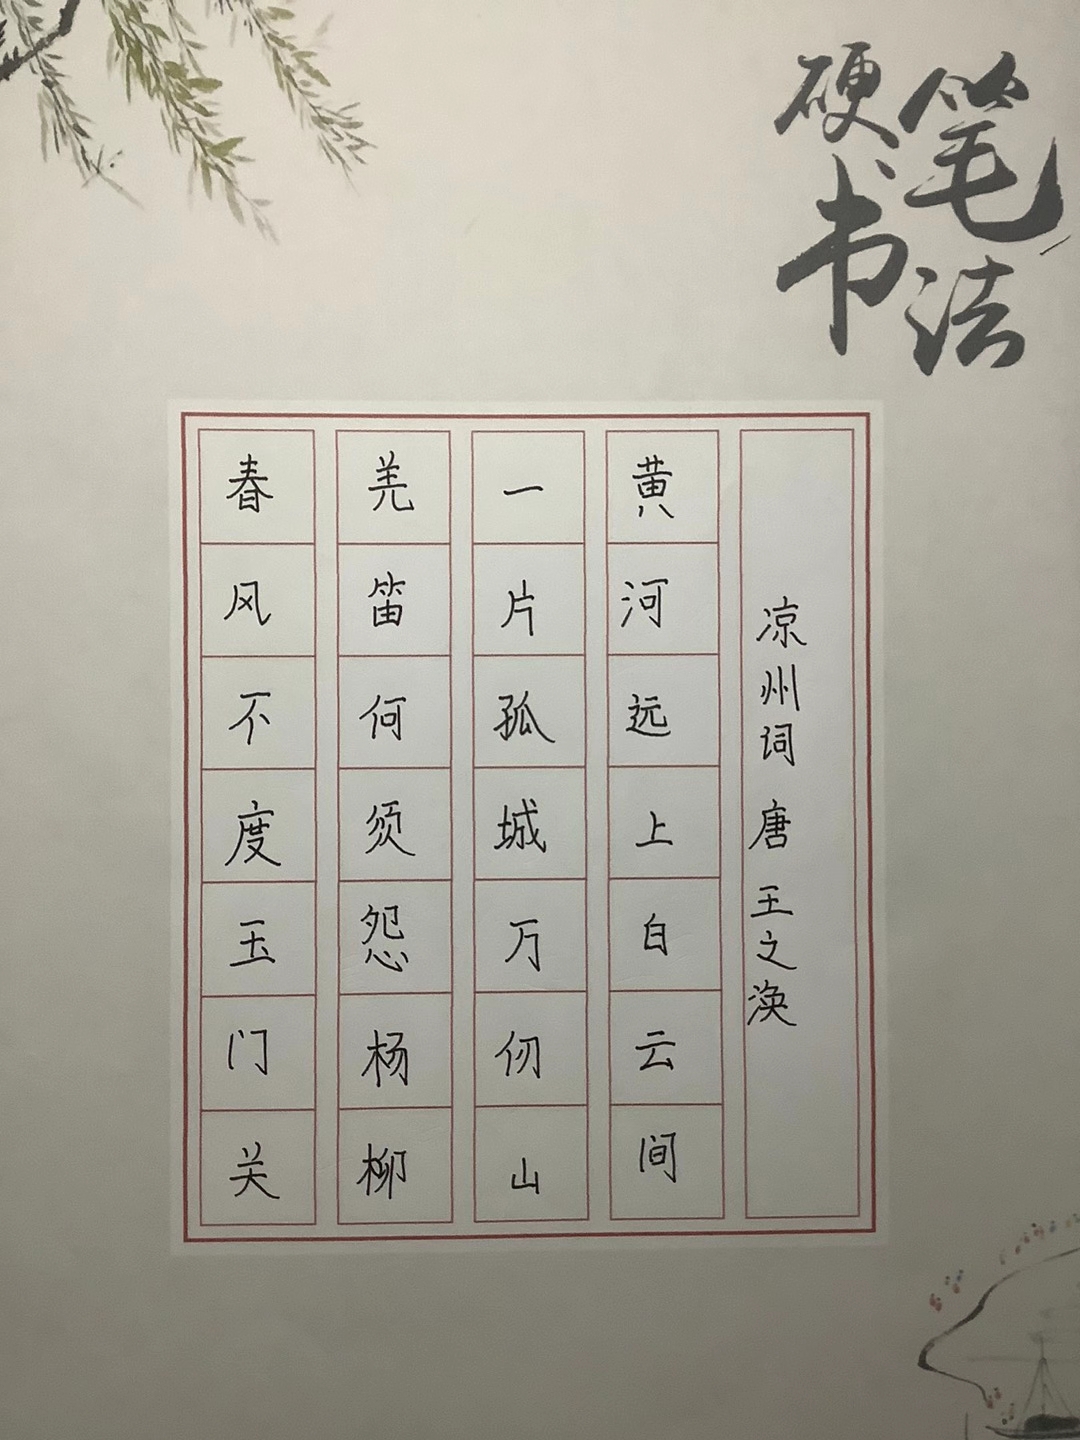 硬笔书法
凉州词 唐 王之涣
黄河远上自云间
一片孤城万仞山
羌笛何须怨杨柳
春风不度玉门关